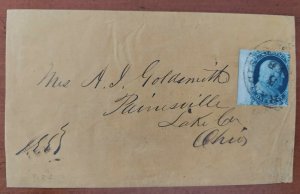 Mrs A. J. Goldsmith
Painesville
Lake Co
Ohio